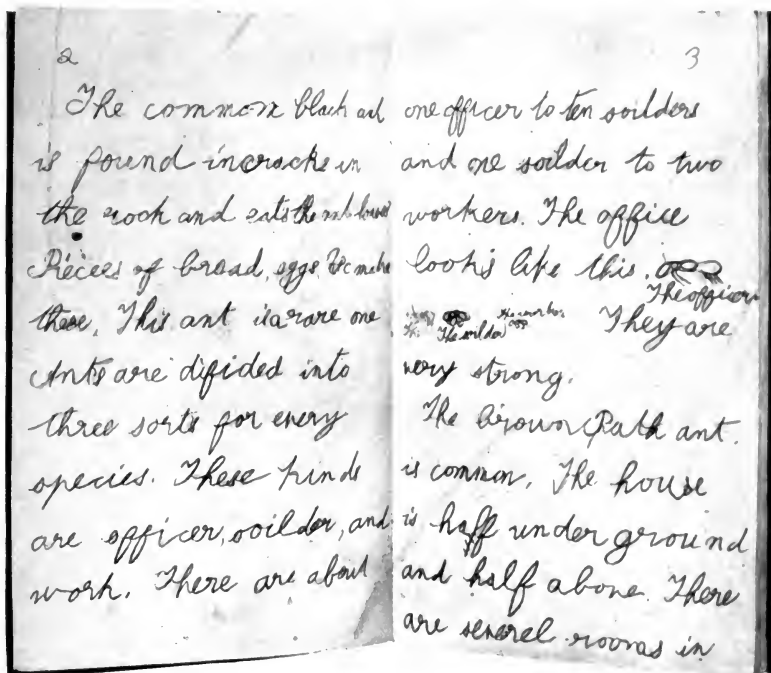 2
The common black ant
is found incracks in
the rock and eats the
Piecees of bread, eggs. We make
these, This ant is a rare one
Ants are difided into
three sorts for every
species. These kinds
are officer, soilder, and
work. There are about
3
one officer to ten soilders
and one soilder to two
workers. The office
looks like this.
The officer
The soilder
The worker
They are
very strong.
The brown Path ant.
is common, The house
is haff under ground
and half above. There
are severel rooms in